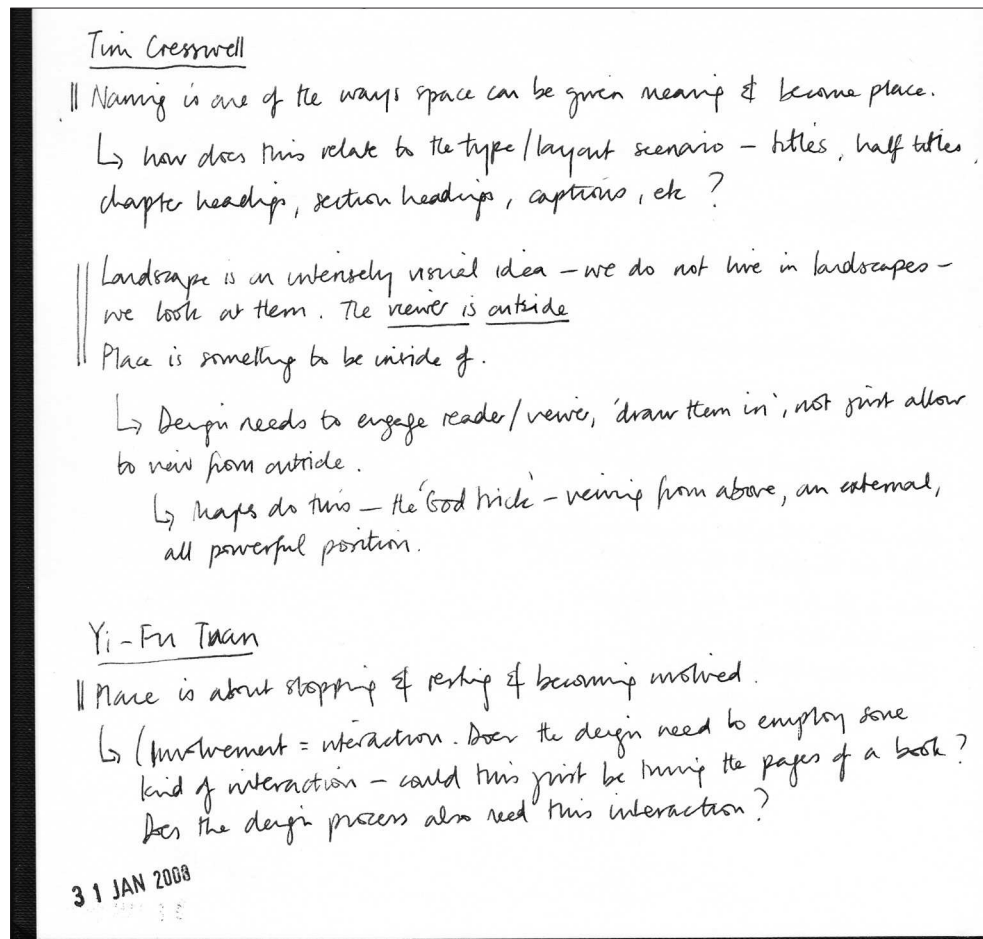 Tim Cresswell
Naming is one of the ways space can be given meaning & become place.
↳ how does this relate to the type/layout scenario – titles, half titles,
chapter headings, section headings, captions, etc ?
Landscape is an intensely visual idea – we do not live in landscapes –
we look at them. The viewer is outside
Place is something to be inside of.
↳ Design needs to engage reader/viewer, 'draw them in', not just allow
to view from outside.
↳ Maps do this – the 'God trick' – viewing from above, an external,
all powerful position.
Yi-Fu Tuan
Place is about stopping & resting & becoming involved.
↳ (Involvement = interaction. Does the design need to employ some
kind of interaction – could this just be turning the pages of a book?
Does the design process also need this interaction?
31 JAN 2008